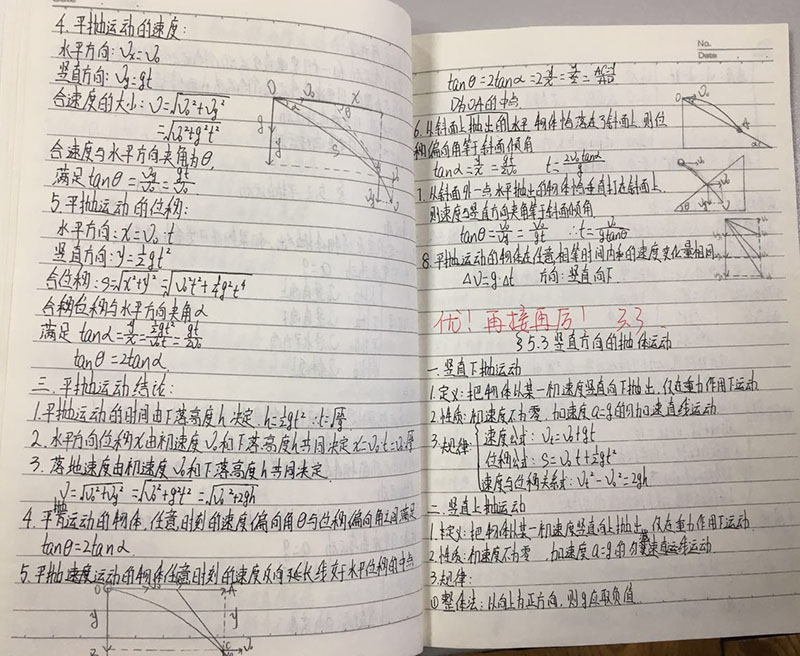 4. 平抛运动的速度:
水平方向: Vx=V₀
竖直方向: Vy=gt
合速度的大小: V=√(V₀²+Vy²)
=√(V₀²+g²t²)
合速度与水平方向夹角为θ,
满足tanθ=Vy/V₀=gt/V₀
5. 平抛运动的位移:
水平方向: x=V₀·t
竖直方向: y=½gt²
合位移: S=√(x²+y²)=√(V₀²t²+¼g²t⁴)
合位移与水平方向夹角α
满足 tanα=y/x=½gt²/V₀t=gt/2V₀
tanθ=2tanα.
三. 平抛运动结论:
1. 平抛运动的时间由下落高度h决定. h=½gt² ∴t=√(2h/g)
2. 水平方向位移x由初速度V₀和下落高度h共同决定 x=V₀·t=V₀√(2h/g)
3. 落地速度由初速度V₀和下落高度h共同决定.
V=√(V₀²+Vy²)=√(V₀²+g²t²)=√(V₀²+2gh)
4. 平抛运动的物体,任意时刻的速度偏向角θ与位移偏向角α间满足
tanθ=2tanα.
5. 平抛速度运动的物体任意时刻的速度反向延长线交于水平位移的中点
No.
Date
tanθ=2tanα=2y/x
D为OA的中点
6. 从斜面上抛出的水平物体恰落在了斜面上,则位
移偏向角等于斜面倾角
tanα=y/x=gt/2V₀ t=2V₀tanα/g
7. 从斜面外一点水平抛出的物体恰垂直打在斜面上.
则速度与竖直方向夹角等于斜面倾角
tanθ=V₀/Vy=V₀/gt ∴t=V₀/gtanθ
8. 平抛运动的物体在任意相等时间内和的速度变化量相同
ΔV=g·Δt 方向:竖直向下.
优! 再接再厉! 3.3
§5.3 竖直方向的抛体运动
一. 竖直下抛运动
1. 定义: 把物体从某一初速度竖直向下抛出,仅在重力作用下运动.
2. 性质: 初速度不为零,加速度a=g的匀加速直线运动.
3. 规律
速度公式: Vt=V₀+gt
位移公式: S=V₀t+½gt²
速度与位移关系式: Vt²-V₀²=2gh
二. 竖直上抛运动
1. 定义: 把物体从某一初速度竖直向上抛出,仅在重力作用下运动.
2. 性质: 初速度不为零,加速度a=g的匀变速直线运动
3. 规律:
① 整体法: 以向上为正方向,则g应取负值.